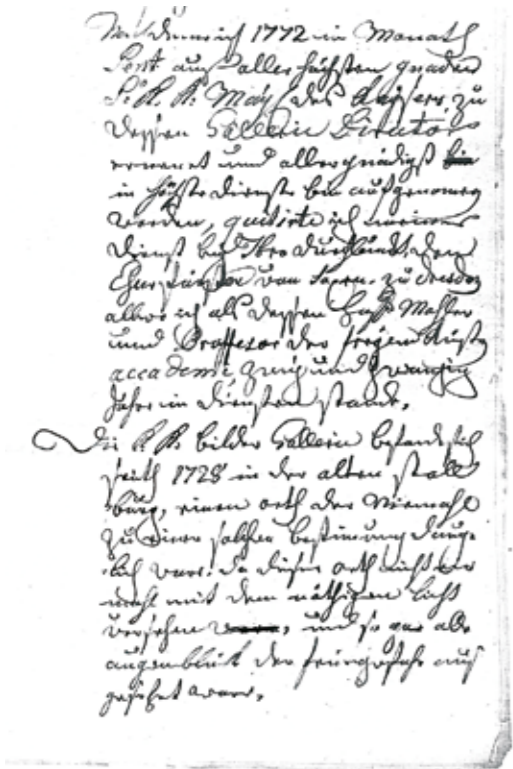 Nach deme ich 1772 in Monath
Sept. aus aller höchsten gnaden
S: K. K: May: des Kaysers, zu
dessen Gallerie Director
ernenet und allergnädigst
in höchste Dienste bin aufgenomen
worden, quitirte ich meinen
Dienst bey Ihro Durchlaucht, dem
Churfürsten von Saxen. zu Dresden
allwo ich als dessen Hoff Mahler
und Proffesor der freyen Kunst
accademie, zwey und zwanzig
Jahr in Diensten stande.
Die K. K. bilder Gallerie befande sich
seith 1728 in der alten stall
burg, einen orth der Niemahl
zu einer solchen bestimung daug-
lich war: da dieser orth nicht ein
mahl mit dem nöthigen licht
versehen, und so gar alle
augenblick der feuersgefahr aus
gesezet ware.